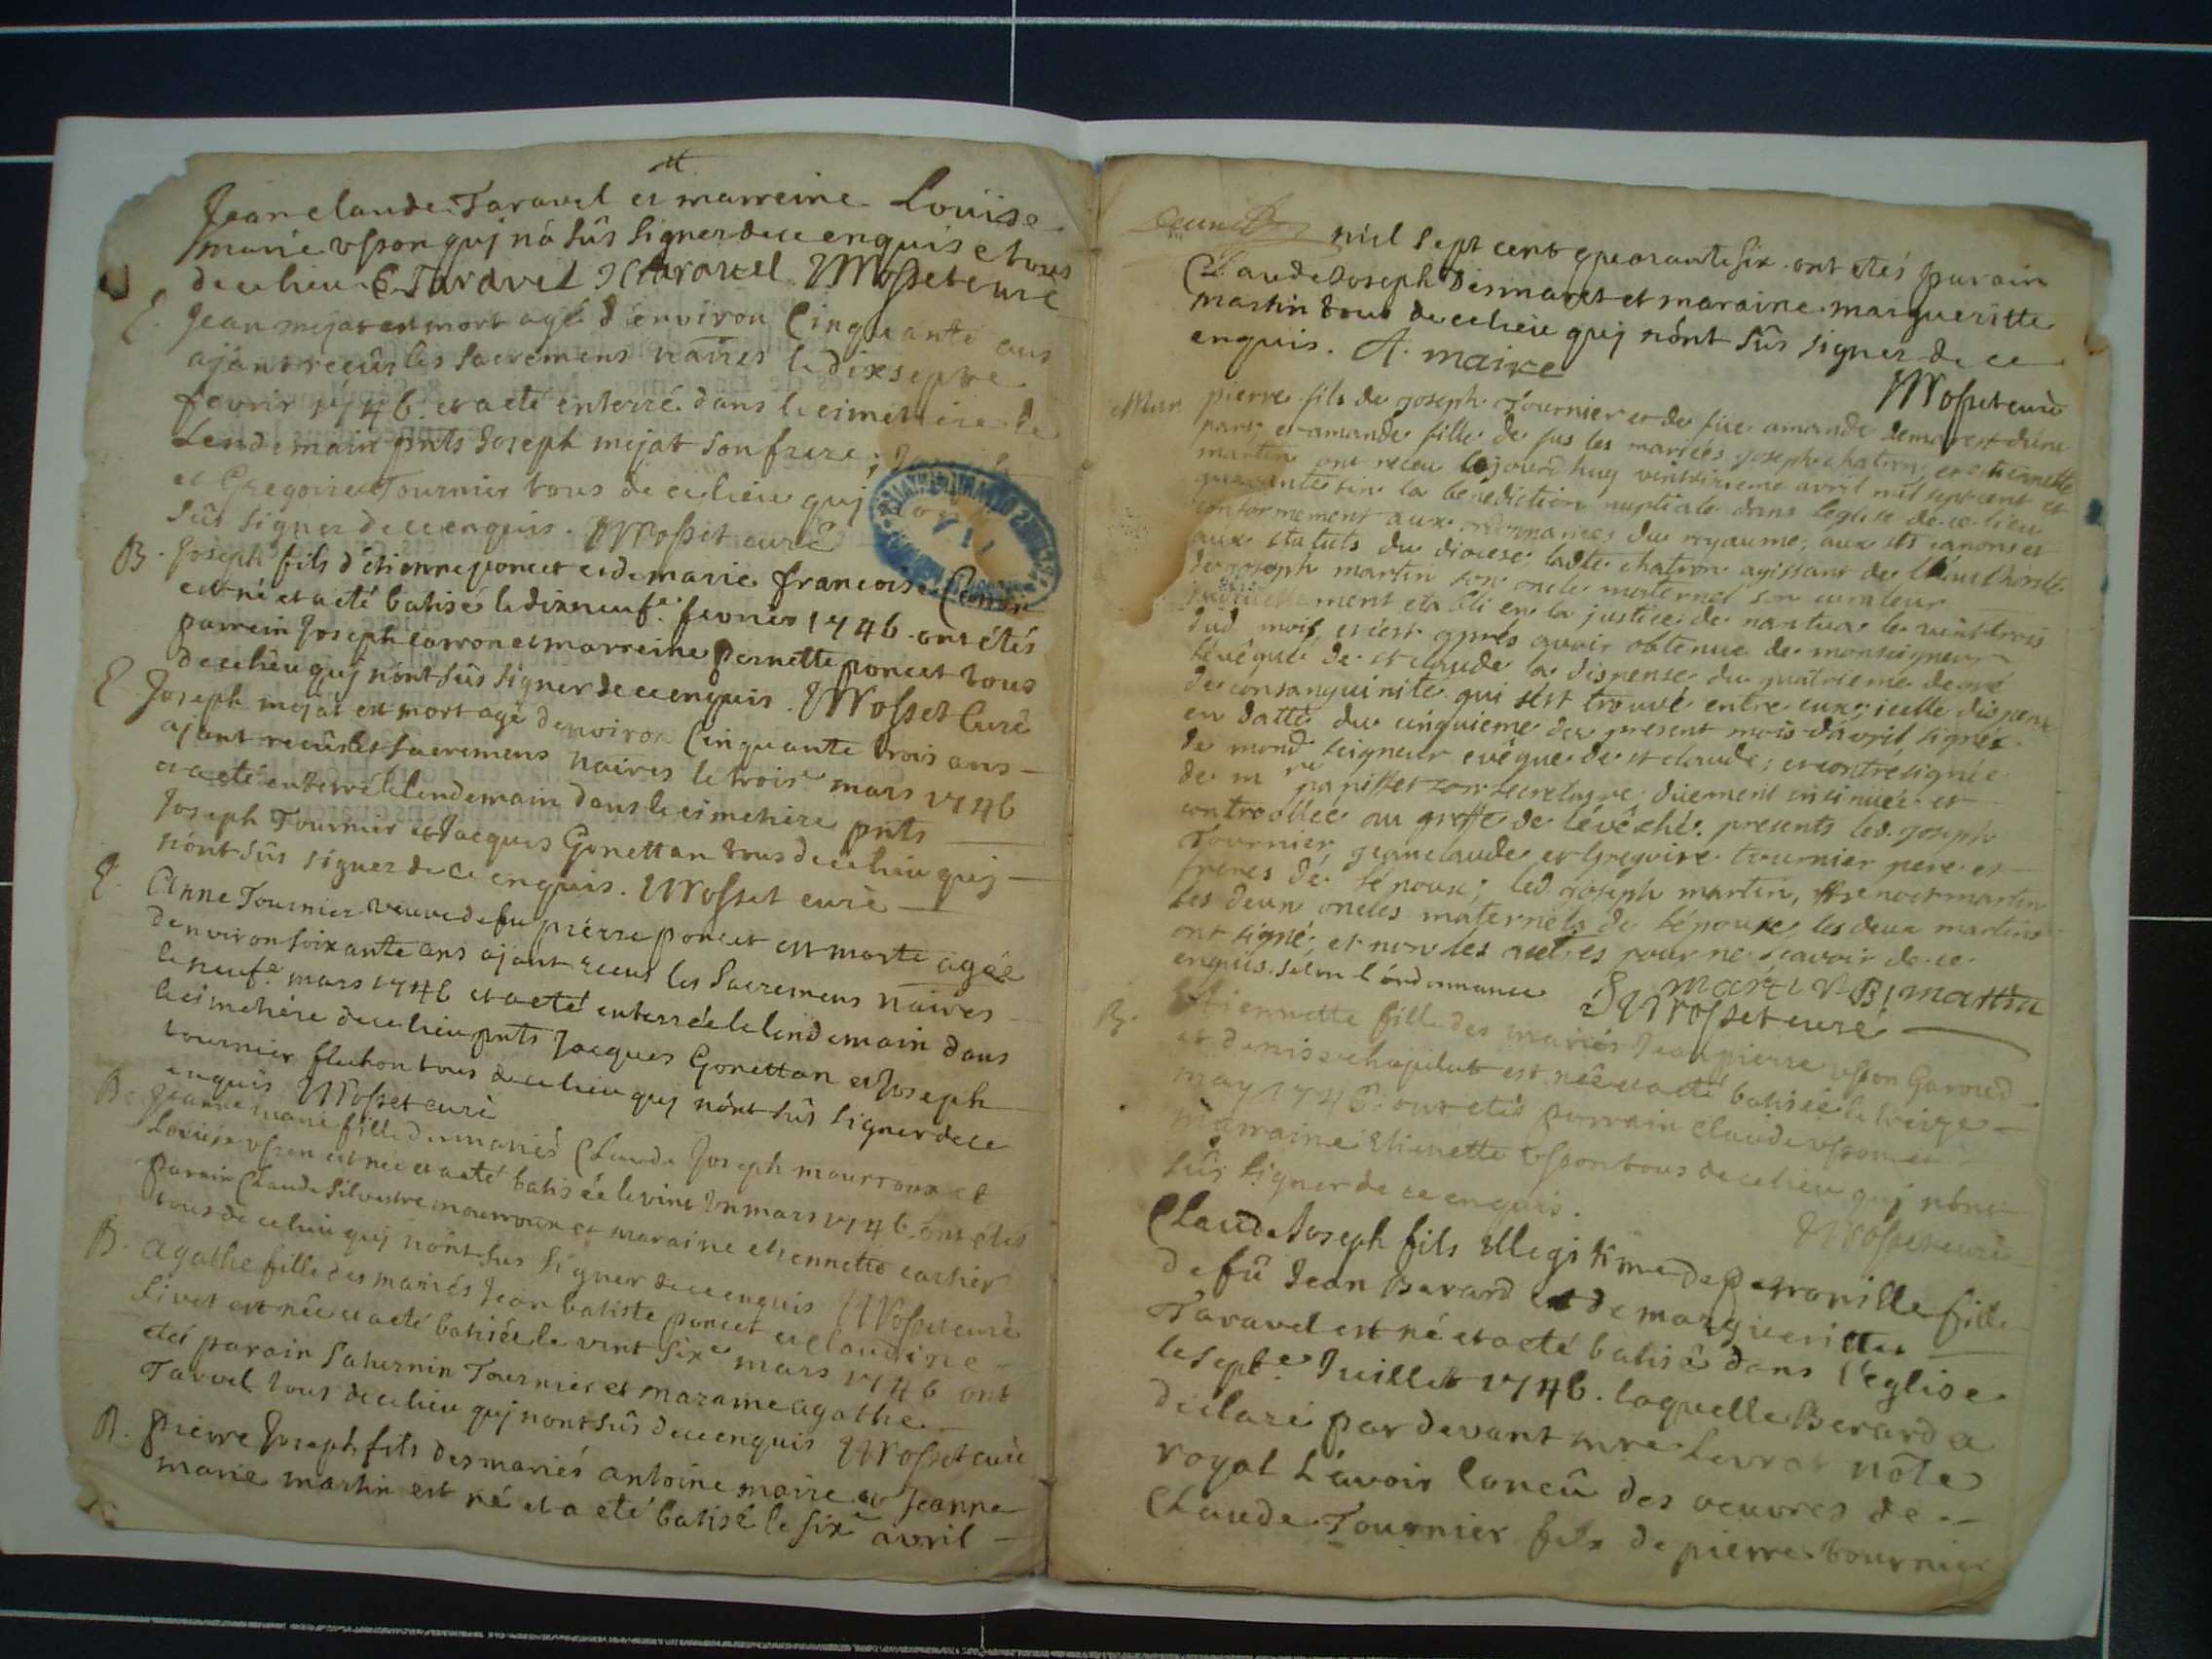 Jean claude Taravel et marreine Louise
marie usson quj nà sûs signer de ce enquis tous
de ce lieu. C. Taravel Taravel Mosset curé
E. Jean mejat est mort agé d'environ Cinquante ans
ajant receûs les sacremens naires le dixseptie
fevrir 1746. et a eté enterré dans le cimetiere le
Lendemain pnts Joseph mejat son frere;
et Gregoire Tournier tous de ce lieu quj
sûs signer de ce enquis. Mosset curé
B. Joseph fils d'étienne poncet et de marie francoise
est né et a eté batisé le dixneufe. fevrier 1746. ont étés
parrein Joseph carron et marreine pernette poncet tous
de ce lieu quj nónt sûs signer de ce enquis. Mosset Curé
E. Joseph mejat est mort agé denviron Cinquante trois ans
ajant receûs les sacremens naires le troise mars 1746
et a eté enterré le lendemain dans le cimetiere pnts
Joseph Tournier et Jacques Gonettan tous de ce lieu quj
nónt sûs signer de ce enquis. Mosset curé
E. Anne Tournier veuve de fu pierre poncet est morte agée
denviron soixante ans ajant receus les Sacremens naires
le neufe. mars 1746 et a eté enterrée le lendemain dans
le cimetiere de ce lieu pnts Jacques Gonettan et Joseph
tournier fluchon tous de ce lieu quj nónt sûs signer de ce
enquis Mosset curé
B. Jeanne marie fille des mariés Claude Joseph mourroux et
Louise usson est née et a eté batisée le vint un mars 1746. ont étés
parain Claude Silvestre mourroux et maraine etiennette carrier
tous de ce lieu quj nónt sus signer de ce enquis Mosset curé
B. agathe fille des mariés Jean batiste poncet et claudine
Livet est née et a eté batisée le vint sixe mars 1746 ont
etés parain Saturnin Tournier et marame agathe
Tarvel tous de ce lieu quj nont sûs de ce enquis Mosset curé
B. pierre Joseph fils des mariés antoine maire et Jeanne
marie martin est né et a eté batisé le sixe avril
mil sept cent quarante six. ont étés parain
Claude Joseph Desmaret et maraine margueritte
martin tous de ce lieu quj nónt sûs signer de ce
enquis. A. maire
Mosset curé
Mar. pierre fils de joseph Tournier et de fue amande demaret d'une
part; et amande fille de fus les mariées joseph chatron et etiennette
martin ont receu cejourdhuy vintsixieme avril mil sept cent et
quarante six la bénédiction nuptiale dans leglise de ce lieu
conformement aux ordonnances du royaume, aux sts canons et
aux statuts du diocese; ladte chatron agissant de l'authorité
de joseph martin son oncle maternel son curateur
ment etabli en la justice de nantua le vint trois
dud mois, et c'est aprés avoir obtenue de monseigneur
l'evêque de st claude la dispense du quatrieme degré
de consanguinité qui sést trouvé entre eux; icelle dispense
en datte du cinquieme du present mois d'avril, signée
de mond seigneur evêque de st claude; et contresignée
de mre papillet son secretayre, düement insinuée et
controollee au greffe de lévêché. presents led. joseph
Tournier, jeanclaude et Gregoire tournier pere et
freres dé lépoux; led joseph martin, Benoit martin
les deux oncles maternels de lépouse les deux martins
ont signé, et non les autres pour ne sçavoir de ce
enquis selon l'ordonnance J martin B! martin
Mosset curé
B. Etiennette fille des mariés Jean pierre usson Garoud
et denise chapelut est née et a eté batisée le treize
may 1746. ont etés parrain claude usson et
marraine Etienette usson tous de ce lieu quj nónt
sûs signer de ce enquis.
Mosset curé
Claude Joseph fils illegitime de petronille fille
de fû Jean Barard et de margueritte
Taravel est né et a eté batisé dans l'église
le septe. Juillet 1746. laquelle Berard a
déclaré par devant mre Levrat nôte
royal L'avoir conceû des oeuvres de
Claude Tournier fils de pierre tournier